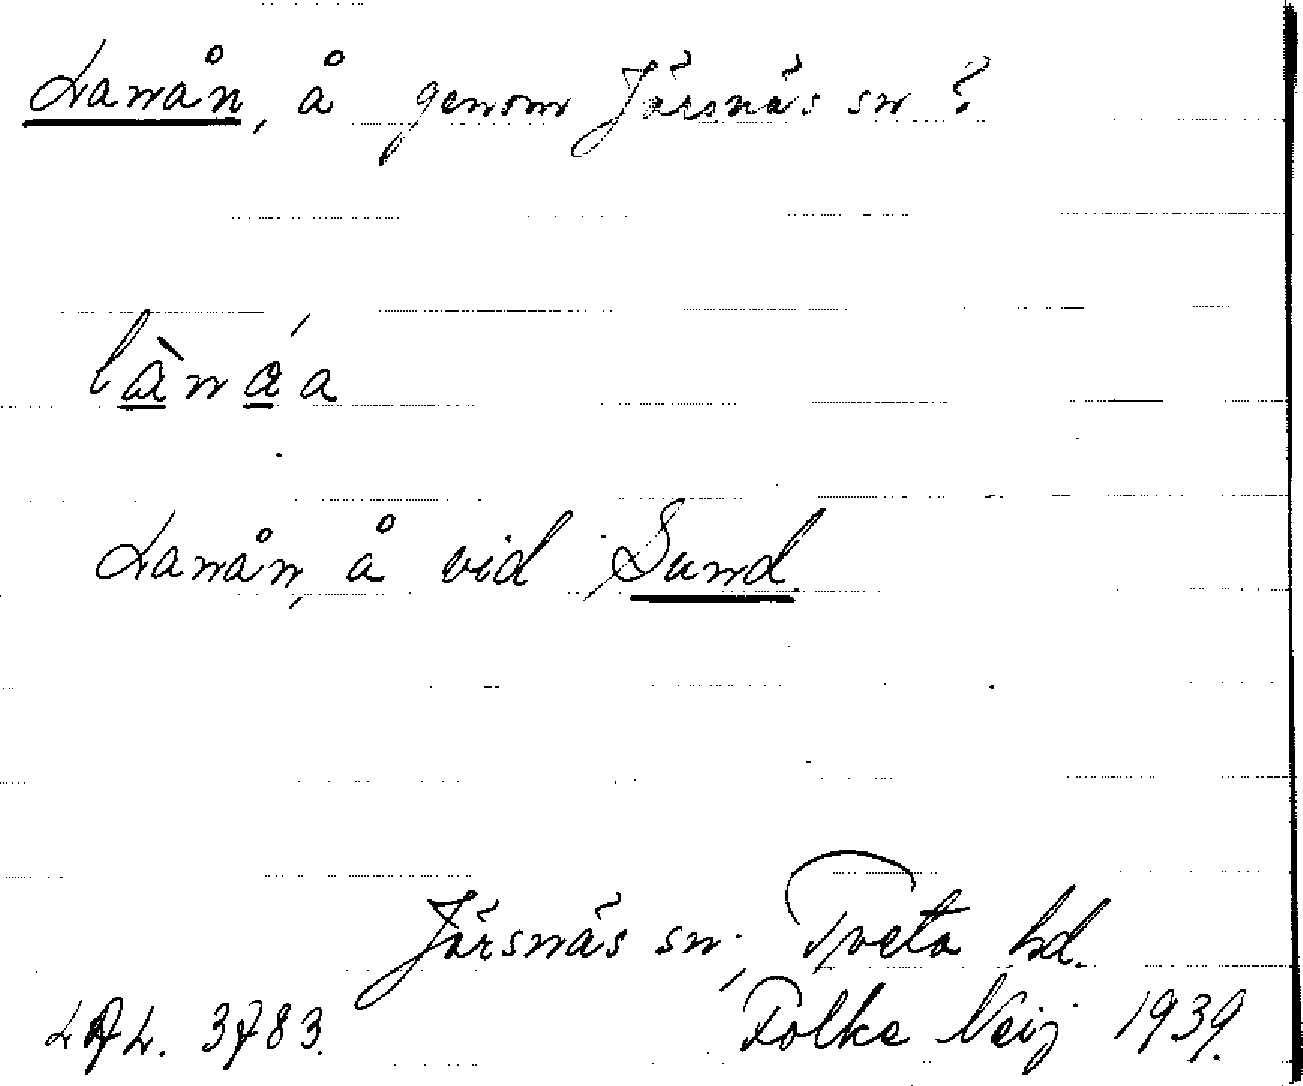 Lanån, å genom Järsnäs sn?
lànáa
Lanån, å vid Sund.
Järsnäs sn, Tveta hd.
3783. Folke Neij 1939.